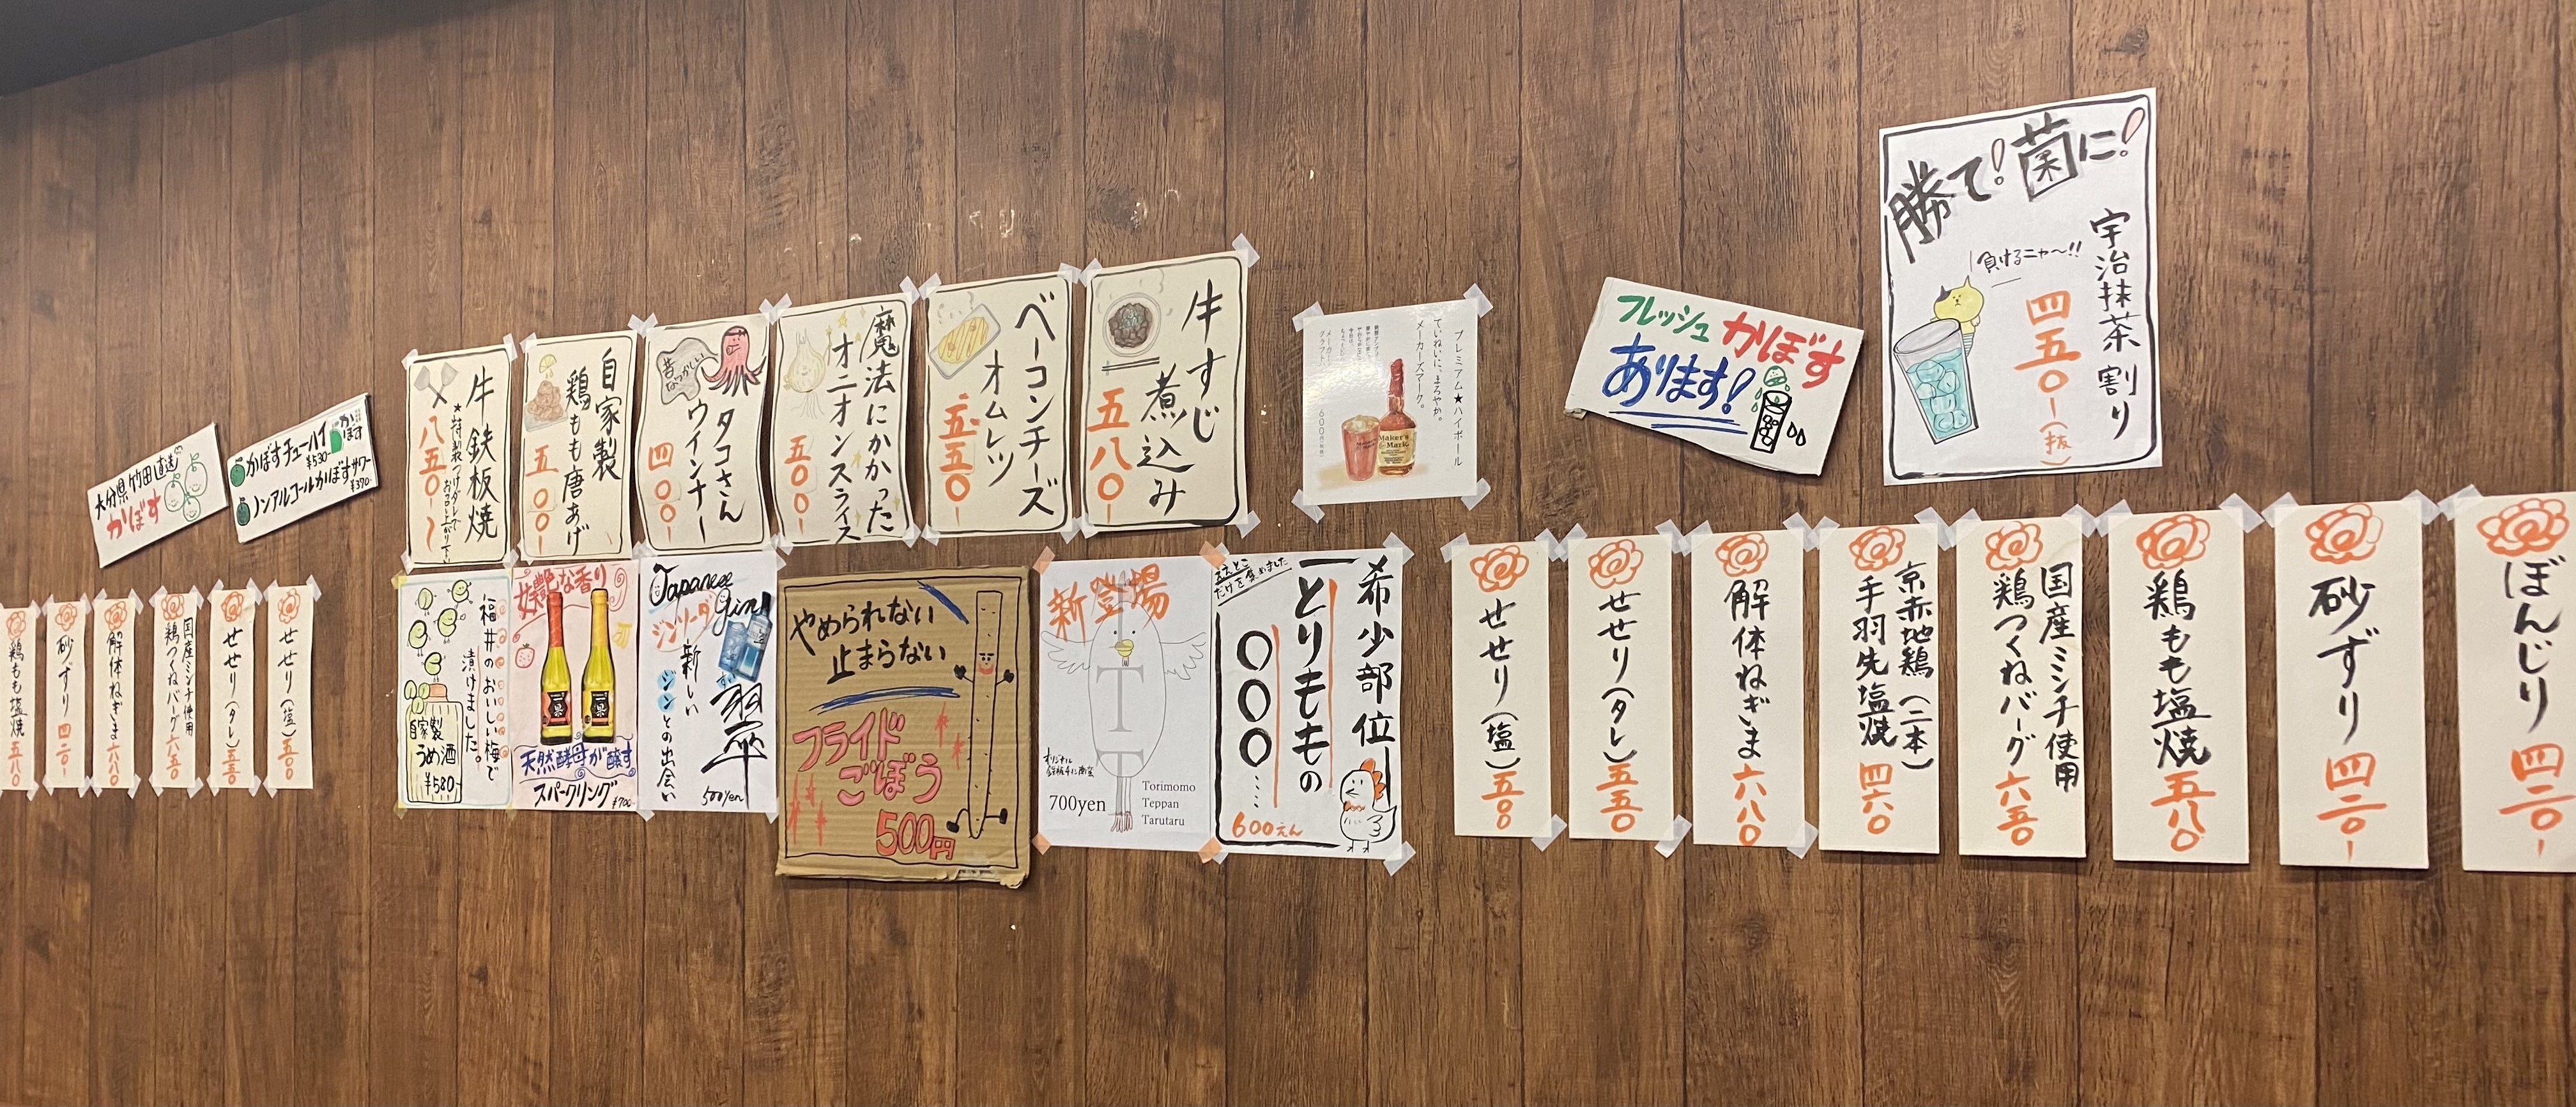 大分県竹田直送
かぼす
かぼす
かぼすチューハイ
¥530-
ノンアルコールかぼすサワー
¥370-
牛鉄板焼
★特製つけダレで
お召し上がり下さい
八五〇-
自家製
鶏もも唐あげ
五〇〇-
昔なつかしい
タコさん
ウインナー
四〇〇-
魔法にかかった
オニオンスライス
五〇〇-
ベーコンチーズ
オムレツ
五五〇-
牛すじ
煮込み
五八〇-
プレミアム★ハイボール
ていねいに、まろやか。
メーカーズマーク。
Maker's
Mark
フレッシュかぼす
あります!
勝て!菌に!
宇治抹茶割り
負けるニャ〜!!
四五〇-(抜)
鶏もも塩焼 五八〇
砂ずり 四二〇-
解体ねぎま 六八〇
国産ミンチ使用
鶏つくねバーグ 六五〇
せせり(タレ) 五五〇
せせり(塩) 五五〇
福井のおいしい梅で
漬けました。
自家製
うめ酒
¥580-
妖艶な香り
天然酵母が醸す
スパークリング
¥700-
Japanese
Gin
ジンソーダ
翠
新しい
ジンとの出会い
500yen
やめられない
止まらない
フライド
ごぼう
500円
新登場
TTT
オリジナル
鉄板チキン南蛮
700yen
Torimomo
Teppan
Tarutaru
ええとこ
だけを集めました
希少部位
とりももの
〇〇〇….
600えん
せせり(塩) 五五〇
せせり(タレ) 五五〇
解体ねぎま 六八〇
京赤地鶏(二本)
手羽先塩焼 四六〇
国産ミンチ使用
鶏つくねバーグ 六五〇
鶏もも塩焼 五八〇
砂ずり 四二〇-
ぼんじり 四二〇-